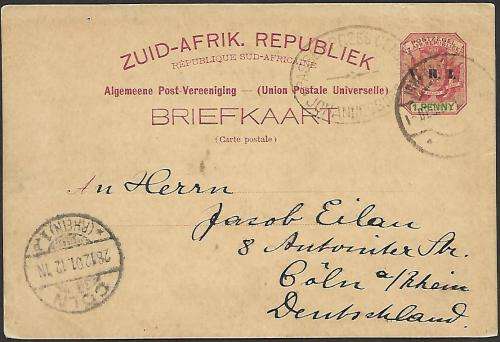 ZUID-AFRIK. REPUBLIEK
RÉPUBLIQUE SUD-AFRICAINE
Algemeene Post-Vereeniging — (Union Postale Universelle)
BRIEFKAART
(Carte postale)
V. R. I.
1 PENNY
JOHANNESB
An Herrn
Jacob Eilau
8 Autoniter Str.
Cöln a/Rhein
Deutschland.
CÖLN
28.12.01. 12-1N
(RHEIN)